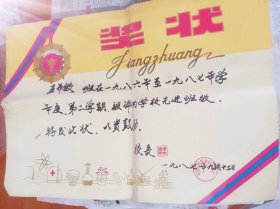 奖状
Jiangzhuang
五年级 班在一九八六年至一九八七年学
年度,第二学期,被评为学校先进班级。
特发此状,以资鼓励。
校长
一九八七年九月十二日